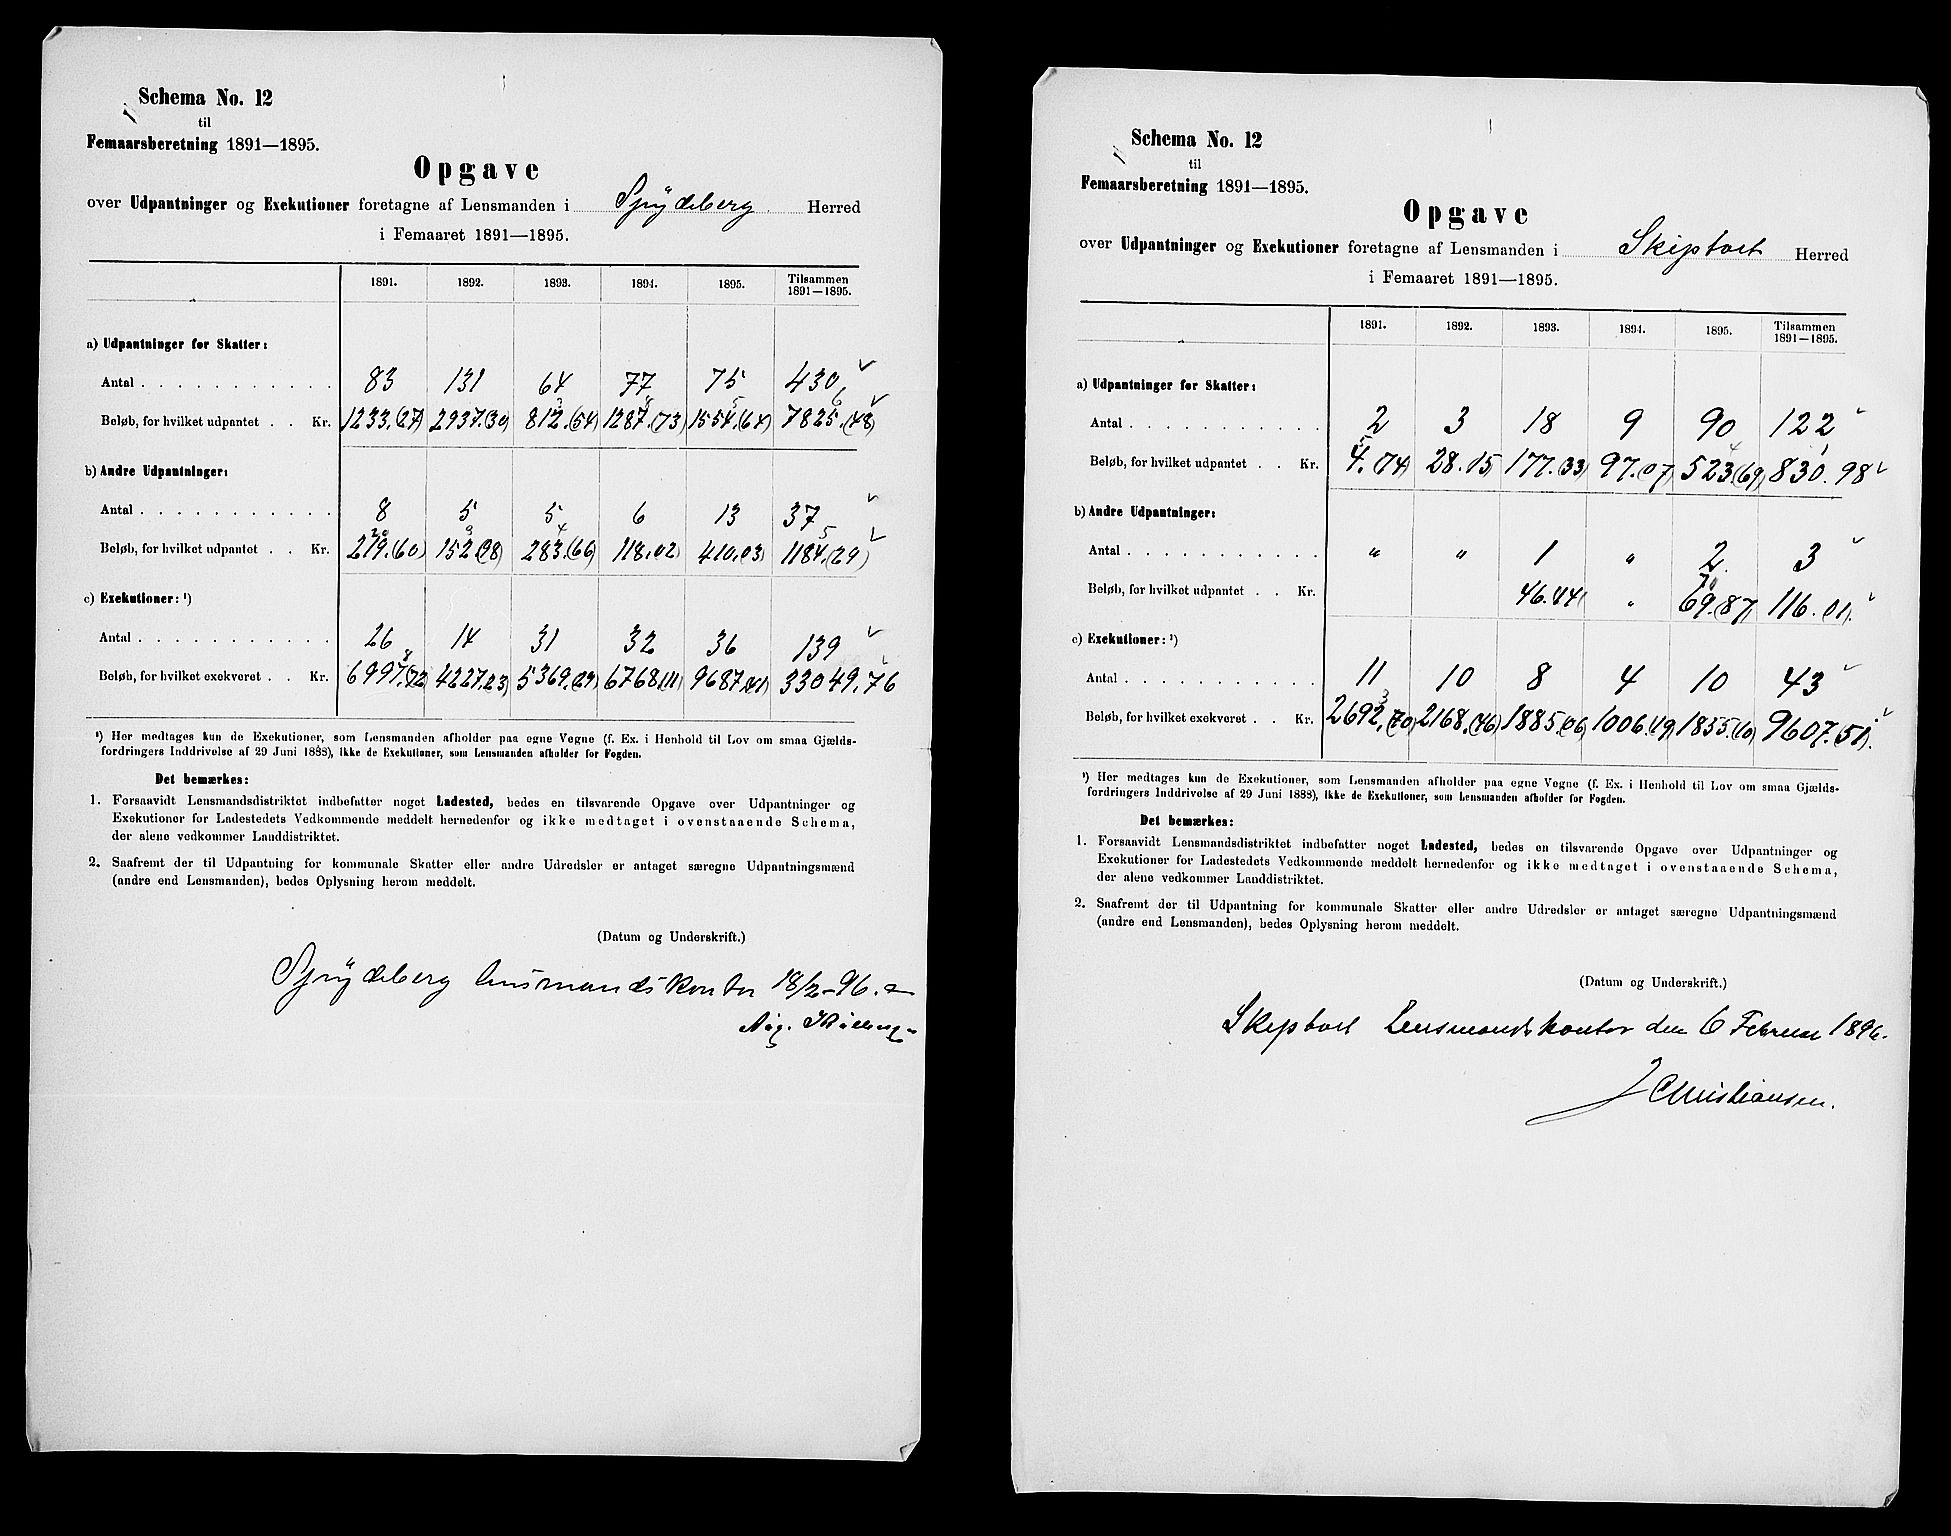 Schema No. 12
til
Femaarsberetning 1891—1895.
Opgave
over Udpantninger og Exekutioner foretagne af Lensmanden i Spydeberg Herred
i Femaaret 1891—1895.
1891. 1892. 1893. 1894. 1895. Tilsammen 1891—1895.
a) Udpantninger for Skatter:
Antal . . . . . . . . . . . . 83 131 64 77 75 430
Beløb, for hvilket udpantet . . Kr. 1233.(27) 2937.(30) 812.(54) 1287.(73) 1554.(64) 7825.(48)
b) Andre Udpantninger:
Antal . . . . . . . . . . . . 8 5 5 6 13 37
Beløb, for hvilket udpantet . . Kr. 219.(60) 152.(98) 283.(66) 118.02) 410.03) 1184.(29)
c) Exekutioner: ¹)
Antal . . . . . . . . . . . . 26 14 31 32 36 139
Beløb, for hvilket exekveret . . Kr. 6997.(72) 4227.23) 5369.(29) 6768.(11) 9687.(41) 33049.76
¹) Her medtages kun de Exekutioner, som Lensmanden afholder paa egne Vegne (f. Ex. i Henhold til Lov om smaa Gjælds-
fordringers Inddrivelse af 29 Juni 1888), ikke de Exekutioner, som Lensmanden afholder for Fogden.
Det bemærkes:
1. Forsaavidt Lensmandsdistriktet indbefatter noget Ladested, bedes en tilsvarende Opgave over Udpantninger og
Exekutioner for Ladestedets Vedkommende meddelt hernedenfor og ikke medtaget i ovenstaaende Schema,
der alene vedkommer Landdistriktet.
2. Saafremt der til Udpantning for kommunale Skatter eller andre Udredsler er antaget særegne Udpantningsmænd
(andre end Lensmanden), bedes Oplysning herom meddelt.
(Datum og Underskrift.)
Spydeberg lensmandskontor 18/2-96.
Schema No. 12
til
Femaarsberetning 1891—1895.
Opgave
over Udpantninger og Exekutioner foretagne af Lensmanden i Skiptvet Herred
i Femaaret 1891—1895.
1891. 1892. 1893. 1894. 1895. Tilsammen 1891—1895.
a) Udpantninger for Skatter:
Antal . . . . . . . . . . . . 2 3 18 9 90 122
Beløb, for hvilket udpantet . . Kr. 4.(74) 28.15 177.(33) 97.07) 523.(69) 830.98
b) Andre Udpantninger:
Antal . . . . . . . . . . . . " " 1 " 2 3
Beløb, for hvilket udpantet . . Kr. 46.44 " 69.(87) 116.01)
c) Exekutioner: ¹)
Antal . . . . . . . . . . . . 11 10 8 4 10 43
Beløb, for hvilket exekveret . . Kr. 2692.(70) 2168.(46) 1885.(06) 1006.(19) 1855.(10) 9607.(51)
¹) Her medtages kun de Exekutioner, som Lensmanden afholder paa egne Vegne (f. Ex. i Henhold til Lov om smaa Gjælds-
fordringers Inddrivelse af 29 Juni 1888), ikke de Exekutioner, som Lensmanden afholder for Fogden.
Det bemærkes:
1. Forsaavidt Lensmandsdistriktet indbefatter noget Ladested, bedes en tilsvarende Opgave over Udpantninger og
Exekutioner for Ladestedets Vedkommende meddelt hernedenfor og ikke medtaget i ovenstaaende Schema,
der alene vedkommer Landdistriktet.
2. Saafremt der til Udpantning for kommunale Skatter eller andre Udredsler er antaget særegne Udpantningsmænd
(andre end Lensmanden), bedes Oplysning herom meddelt.
(Datum og Underskrift.)
Skiptvet Lensmandskontor den 6 Februar 1896.
J Christiansen.